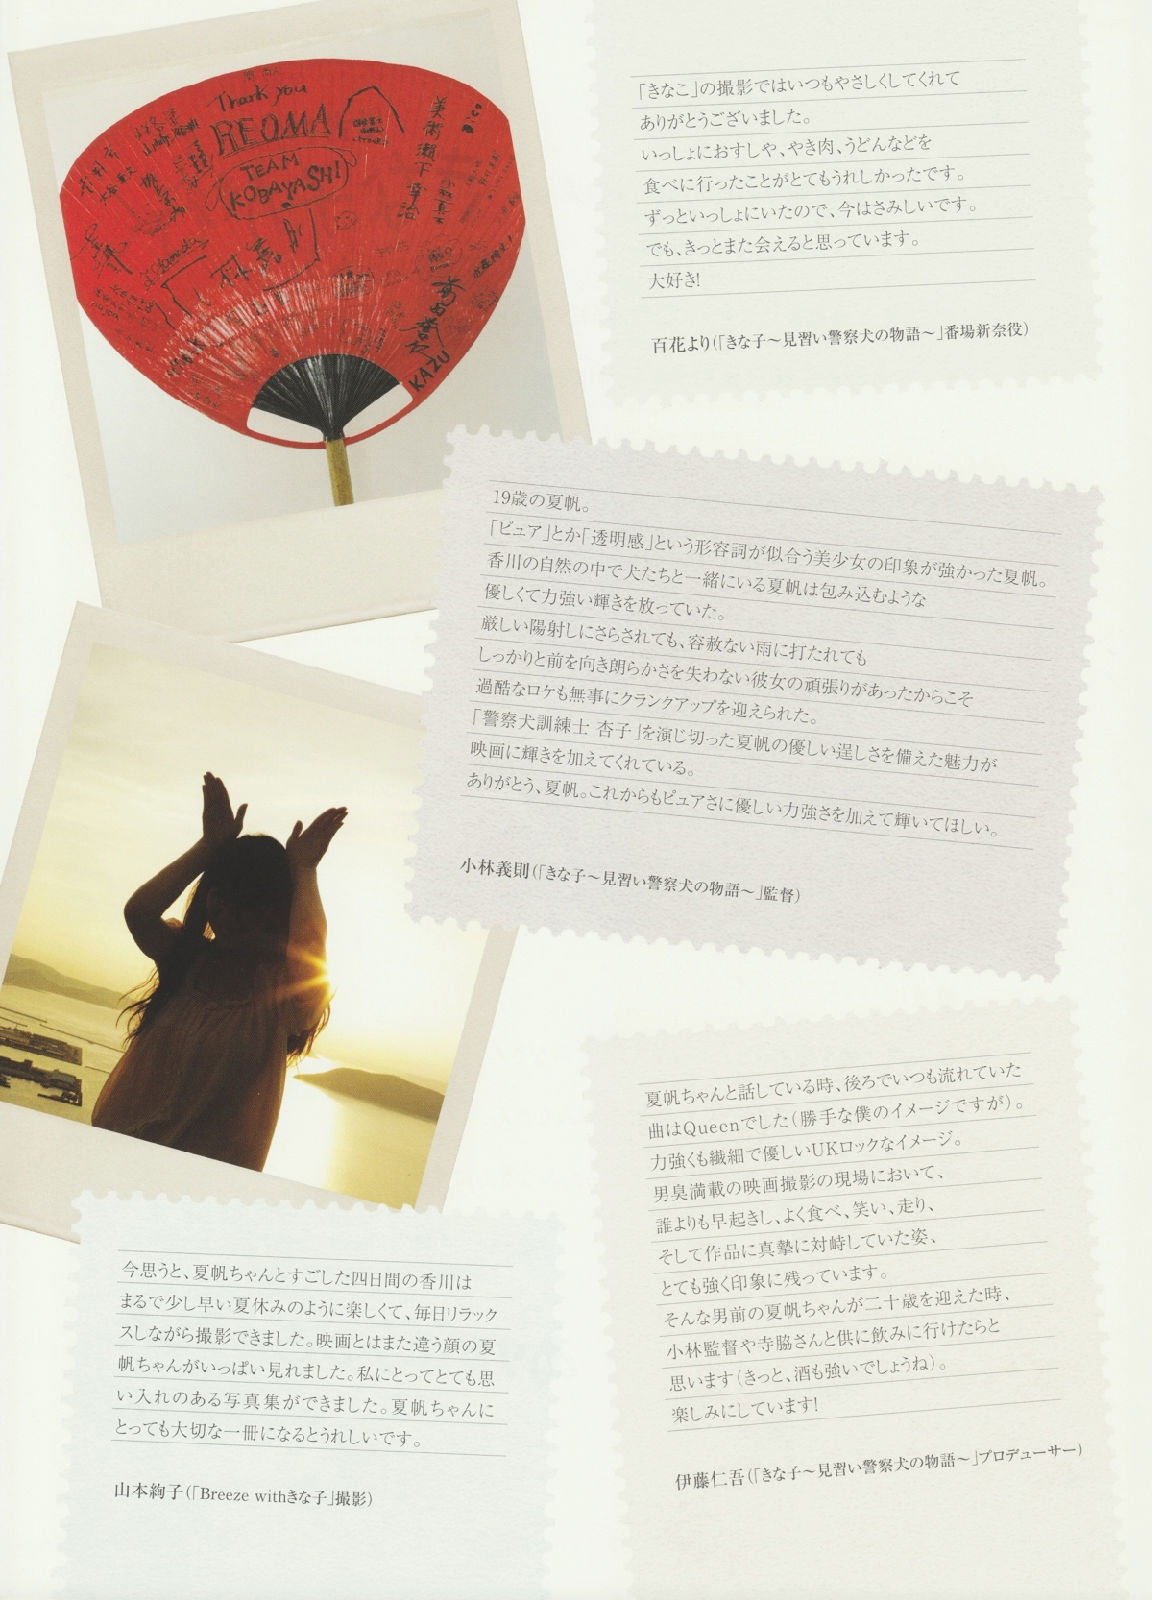 Thank you
REOMA
TEAM
KOBAYASHI
美術 瀬下幸治
KAZU
「きなこ」の撮影ではいつもやさしくしてくれて
ありがとうございました。
いっしょにおすしや、やき肉、うどんなどを
食べに行ったことがとてもうれしかったです。
ずっといっしょにいたので、今はさみしいです。
でも、きっとまた会えると思っています。
大好き!
百花より(「きな子〜見習い警察犬の物語〜」番場新奈役)
19歳の夏帆。
「ピュア」とか「透明感」という形容詞が似合う美少女の印象が強かった夏帆。
香川の自然の中で犬たちと一緒にいる夏帆は包み込むような
優しくて力強い輝きを放っていた。
厳しい陽射しにさらされても、容赦ない雨に打たれても
しっかりと前を向き朗らかさを失わない彼女の頑張りがあったからこそ
過酷なロケも無事にクランクアップを迎えられた。
「警察犬訓練士 杏子」を演じ切った夏帆の優しい逞しさを備えた魅力が
映画に輝きを加えてくれている。
ありがとう、夏帆。これからもピュアさに優しい力強さを加えて輝いてほしい。
小林義則(「きな子〜見習い警察犬の物語〜」監督)
夏帆ちゃんと話している時、後ろでいつも流れていた
曲はQueenでした(勝手な僕のイメージですが)。
力強くも繊細で優しいUKロックなイメージ。
男臭満載の映画撮影の現場において、
誰よりも早起きし、よく食べ、笑い、走り、
そして作品に真摯に対峙していた姿、
とても強く印象に残っています。
そんな男前の夏帆ちゃんが二十歳を迎えた時、
小林監督や寺脇さんと供に飲みに行けたらと
思います(きっと、酒も強いでしょうね)。
楽しみにしています!
伊藤仁吾(「きな子〜見習い警察犬の物語〜」プロデューサー)
今思うと、夏帆ちゃんとすごした四日間の香川は
まるで少し早い夏休みのように楽しくて、毎日リラック
スしながら撮影できました。映画とはまた違う顔の夏
帆ちゃんがいっぱい見れました。私にとってとても思
い入れのある写真集ができました。夏帆ちゃんに
とっても大切な一冊になるとうれしいです。
山本絢子(「Breeze withきな子」撮影)